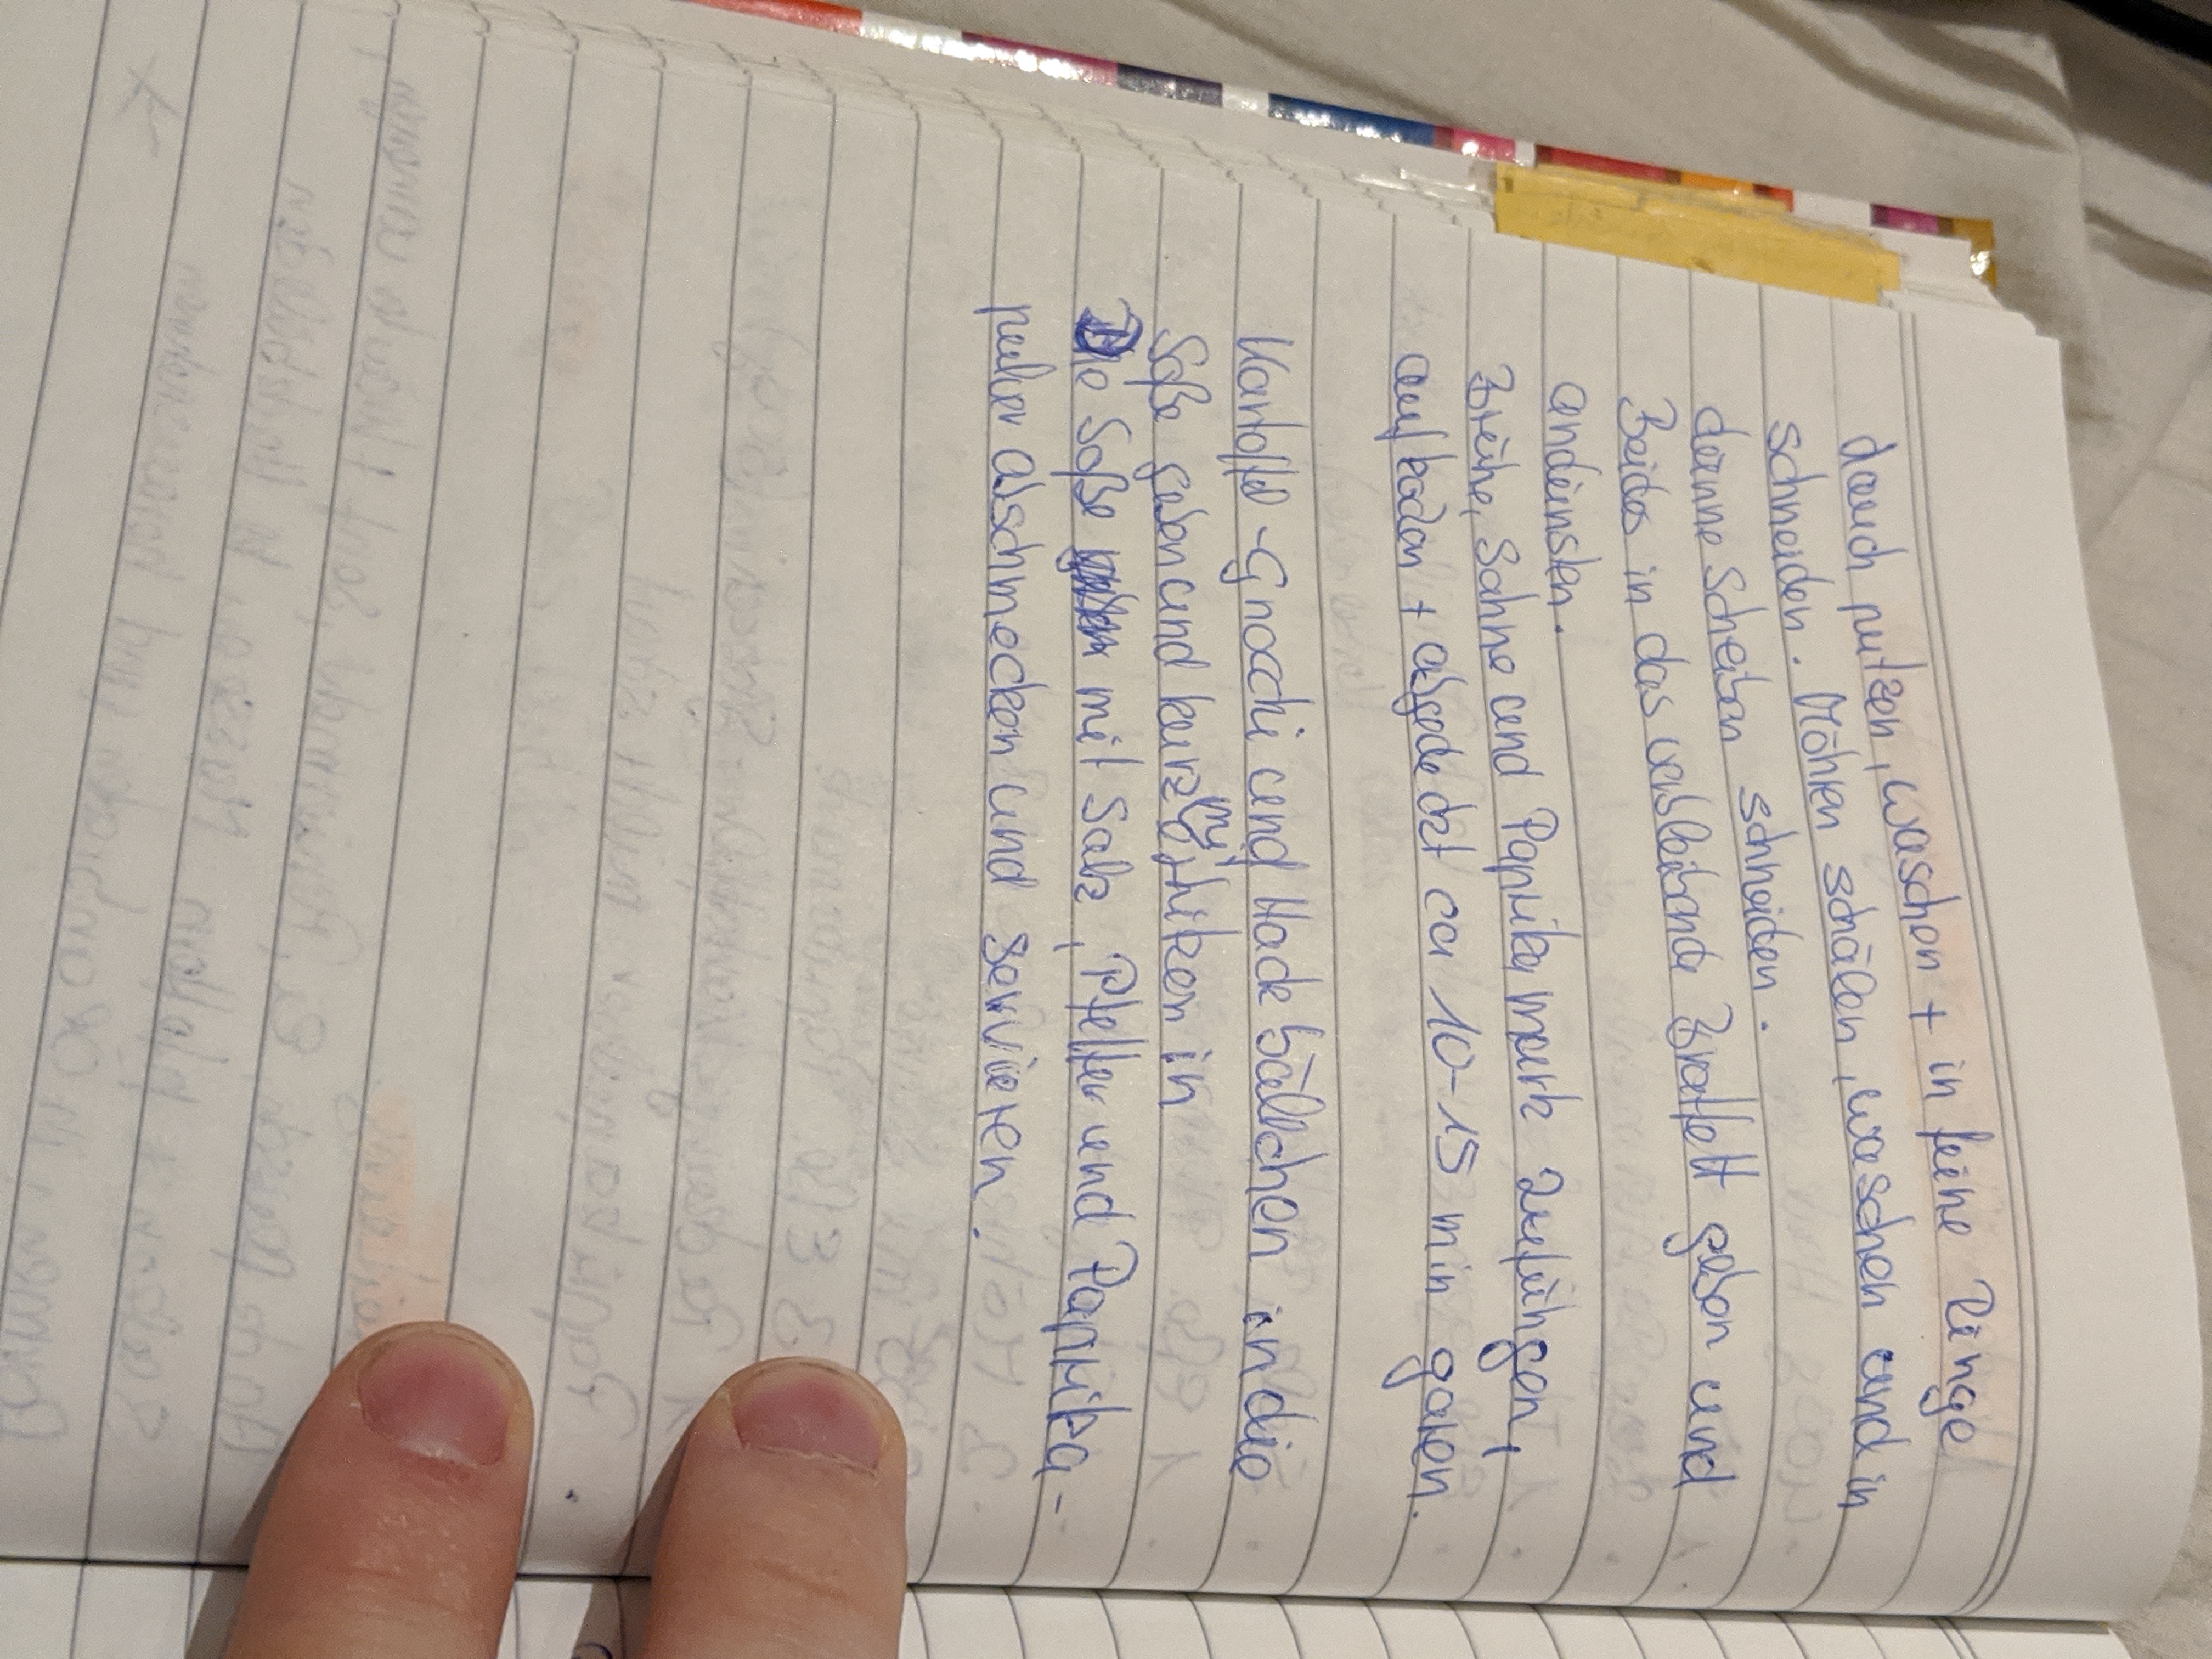 Lauch putzen, waschen + in feine Ringe
schneiden. Möhren schälen, waschen und in
dünne Scheiben schneiden.
Beides in das verbleibende Bratfett geben und
andünsten.
Brühe, Sahne und Paprikamark zufühgen,
aufkochen + abgedeckt ca 10-15 min garen.
Kartoffel-Gnocchi und Hackbällchen in die
Soße geben und kurz mit erhitzen in
Die Soße mit Salz, Pfeffer und Paprika-
pulver abschmecken und servieren.